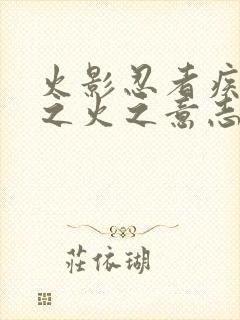 火影忍者疾
之火之意志
莊依瑚